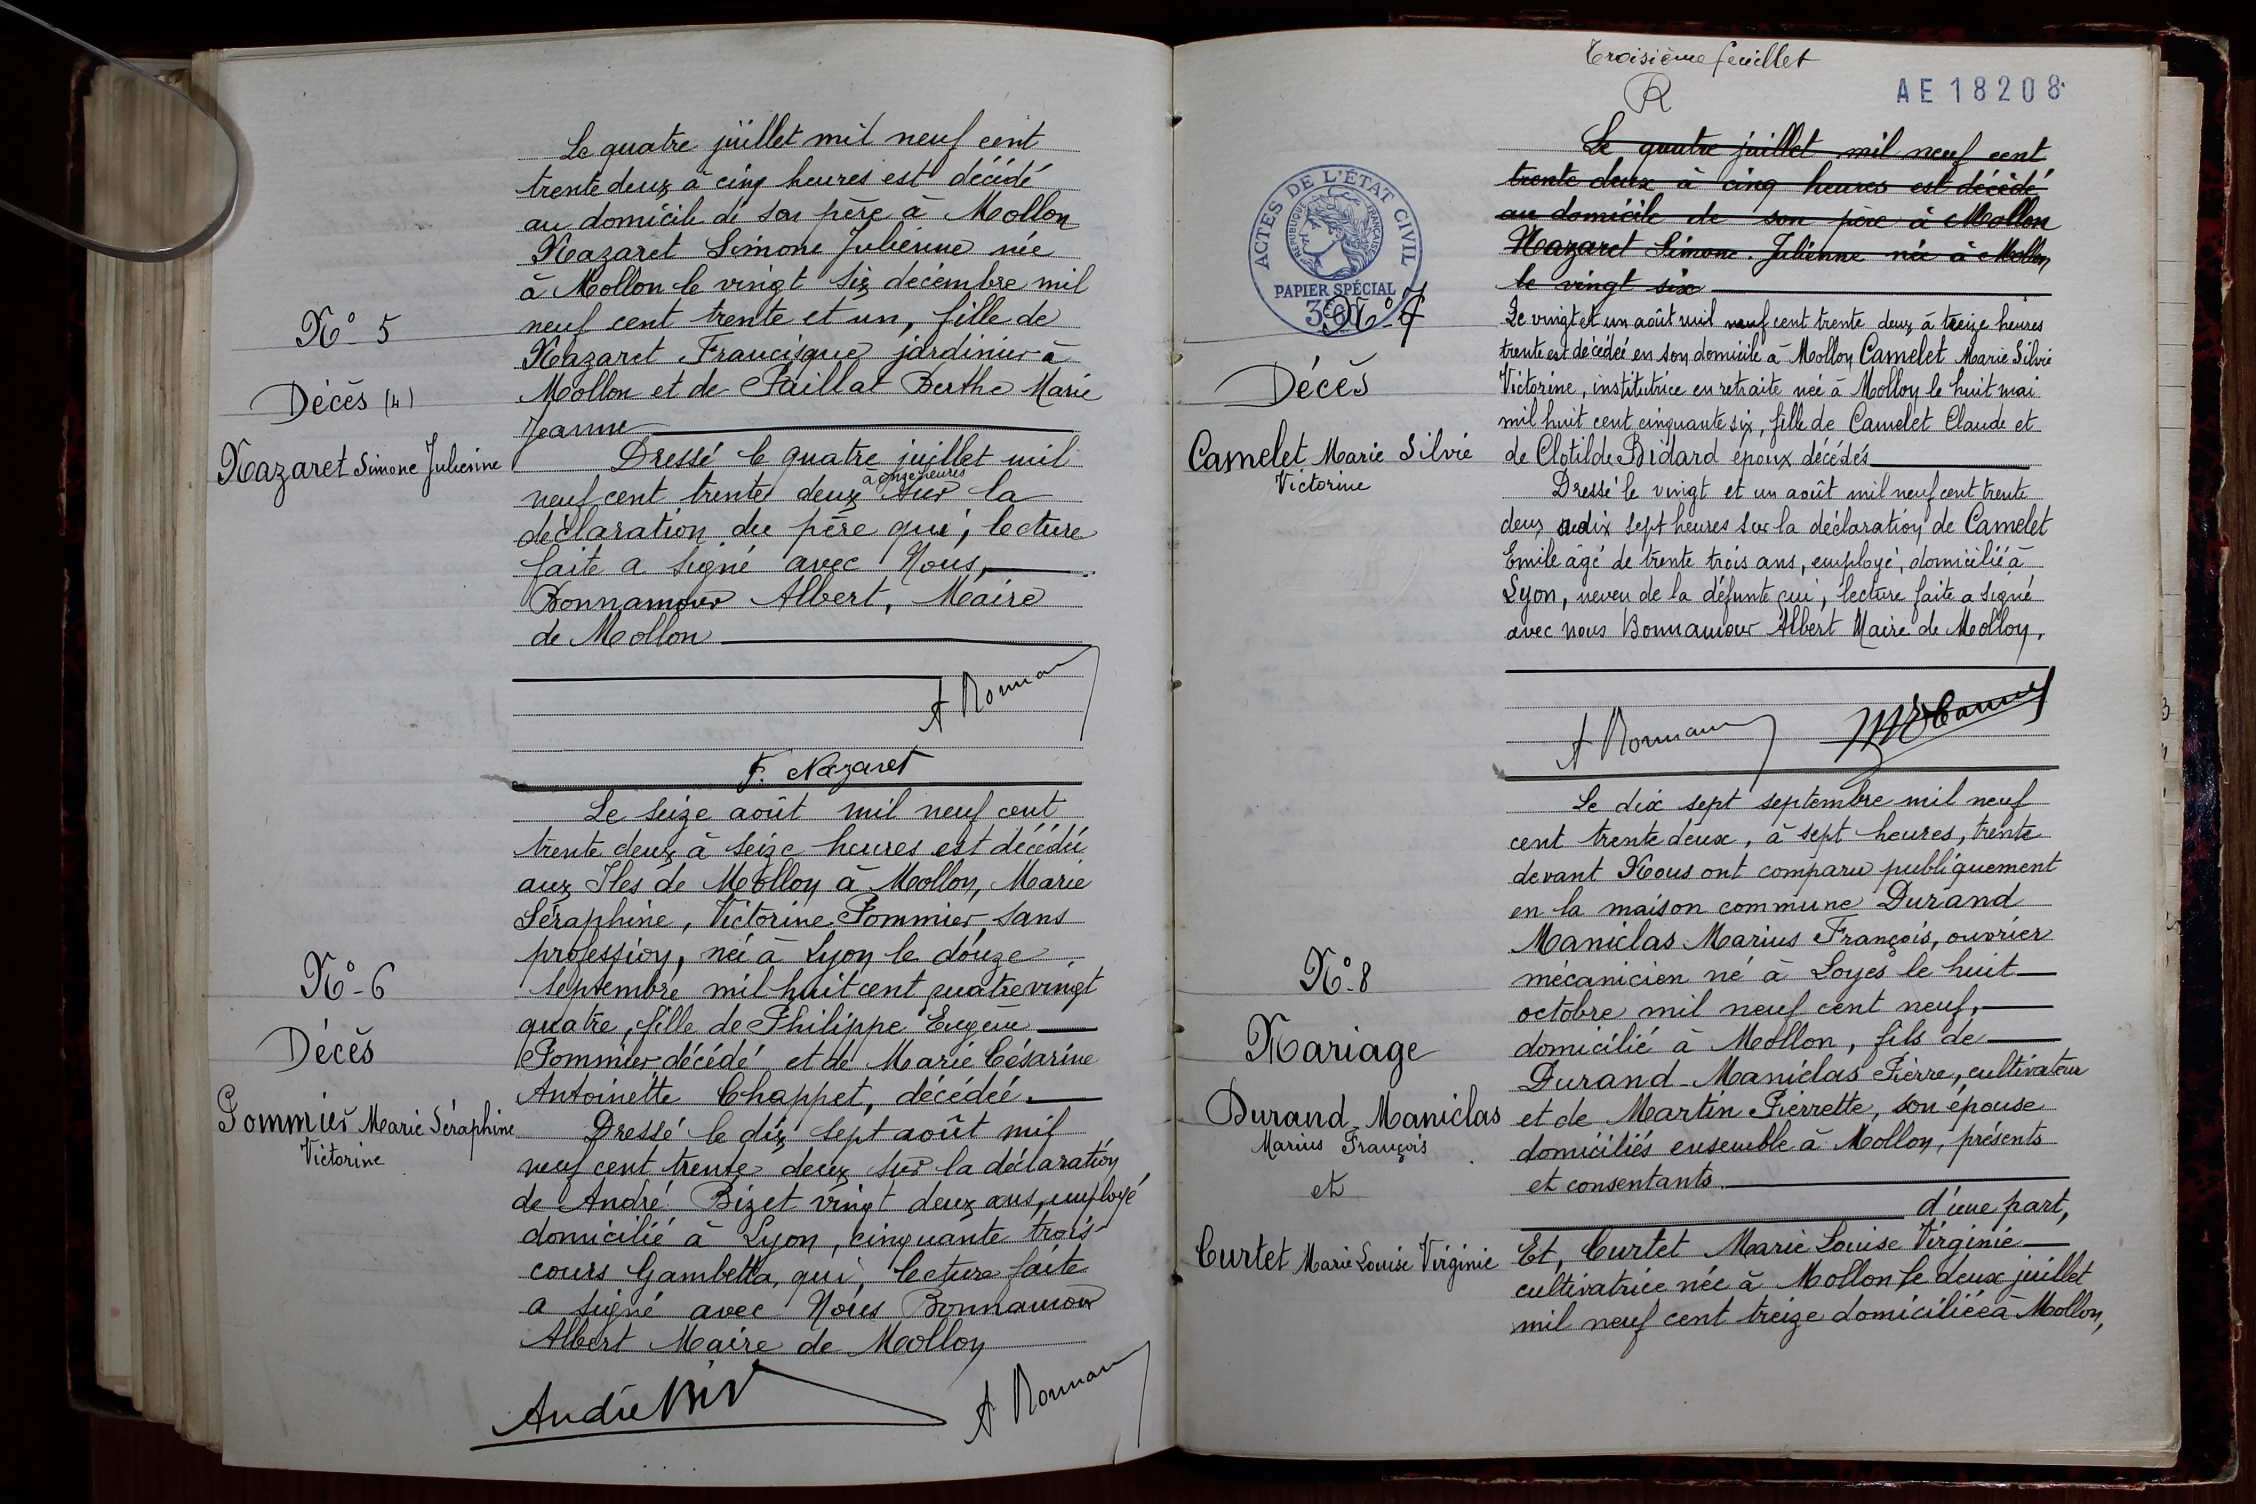 Le quatre juillet mil neuf cent
trente deux à cinq heures est décédé
au domicile de son père à Mollon
Nazaret Simone Julienne née
à Mollon le vingt six décembre mil
neuf cent trente et un, fille de
Nazaret Francisque jardinier à
Mollon et de Paillat Berthe Marie
Jeanne
N° 5
Décès (4)
Nazaret Simone Julienne
Dressé le quatre juillet mil
à onze heures
neuf cent trente deux sur la
déclaration du père qui, lecture
faite a signé avec Nous,
Bonnamour Albert, Maire
de Mollon
A Bonnam
F. Nazaret
Le seize août mil neuf cent
trente deux à seize heures est décédée
aux Iles de Mollon à Mollon, Marie
Séraphine, Victorine Pommier, sans
profession, née à Lyon le douze
septembre mil huit cent quatre vingt
quatre, fille de Philippe Eugène
Pommier décédé et de Marie Césarine
Antoinette Chappet, décédée.
N° 6
Décès
Pommier Marie Séraphine
Victorine
Dressé le dix sept août mil
neuf cent trente deux sur la déclaration
de André Bizet vingt deux ans, employé
domicilié à Lyon, cinquante trois
cours Gambetta, qui, lecture faite
a signé avec Nous Bonnamour
Albert Maire de Mollon
André
A Bonnam
Troisième feuillet
R
AE 18208
Le quatre juillet mil neuf cent
trente deux à cinq heures est décédé
au domicile de son père à Mollon
Nazaret Simone Julienne née à Mollon
le vingt six
ACTES DE L'ÉTAT CIVIL
RÉPUBLIQUE FRANÇAISE
PAPIER SPÉCIAL
N° 7
Décès
Camelet Marie Silvie
Victorine
Le vingt et un août mil neuf cent trente deux à treize heures
trente est décédée en son domicile à Mollon, Camelet Marie Silvie
Victorine, institutrice en retraite née à Mollon le huit mai
mil huit cent cinquante six, fille de Camelet Claude et
de Clotilde Bidard époux décédés
Dressé le vingt et un août mil neuf cent trente
deux à dix sept heures sur la déclaration de Camelet
Emile âgé de trente trois ans, employé, domicilié à
Lyon, neveu de la défunte qui, lecture faite a signé
avec nous Bonnamour Albert Maire de Mollon.
A Bonnam
N° 8
Mariage
Durand-Maniclas
Marius François
et
Curtet Marie Louise Virginie
Le dix sept septembre mil neuf
cent trente deux, à sept heures, trente
devant Nous ont comparu publiquement
en la maison commune Durand
Maniclas Marius François, ouvrier
mécanicien né à Loyes le huit
octobre mil neuf cent neuf,
domicilié à Mollon, fils de
Durand-Maniclas Pierre, cultivateur
et de Martin Pierrette, son épouse
domiciliés ensemble à Mollon, présents
et consentants.
d'une part,
Et, Curtet Marie Louise Virginie
cultivatrice née à Mollon le deux juillet
mil neuf cent treize domiciliée à Mollon,